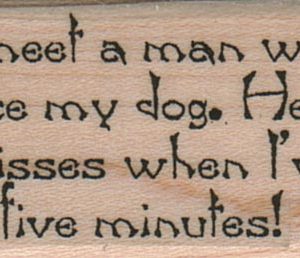 meet a man w
ce my dog. He
isses when I'v
five minutes!